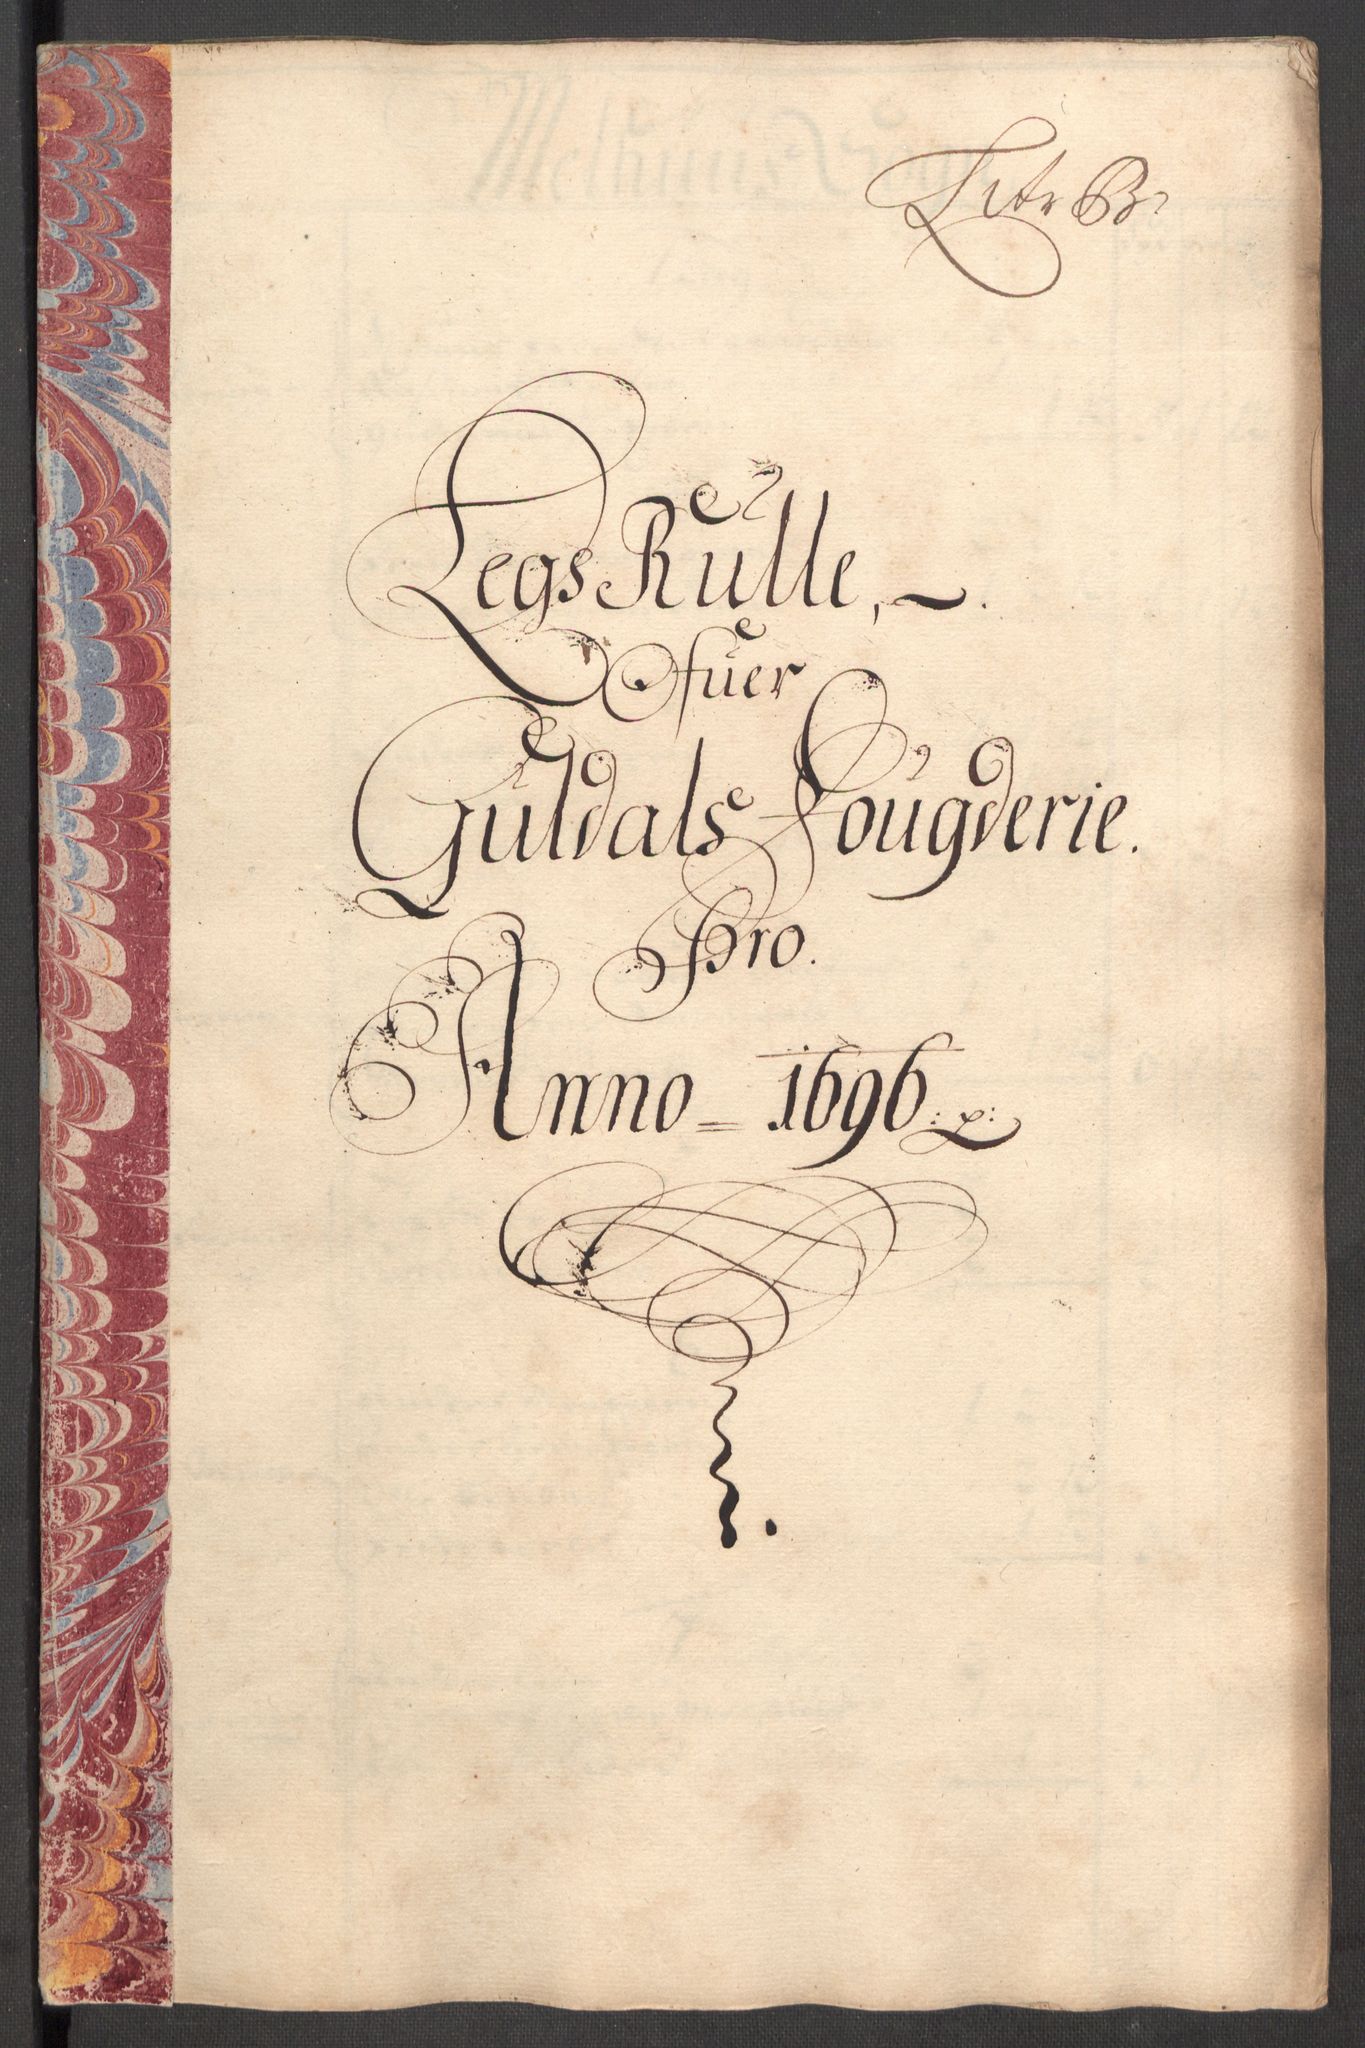 Litr B:
Legs Rulle,
ofuer
Guldals Fougderie.
Pro.
Anno = 1696